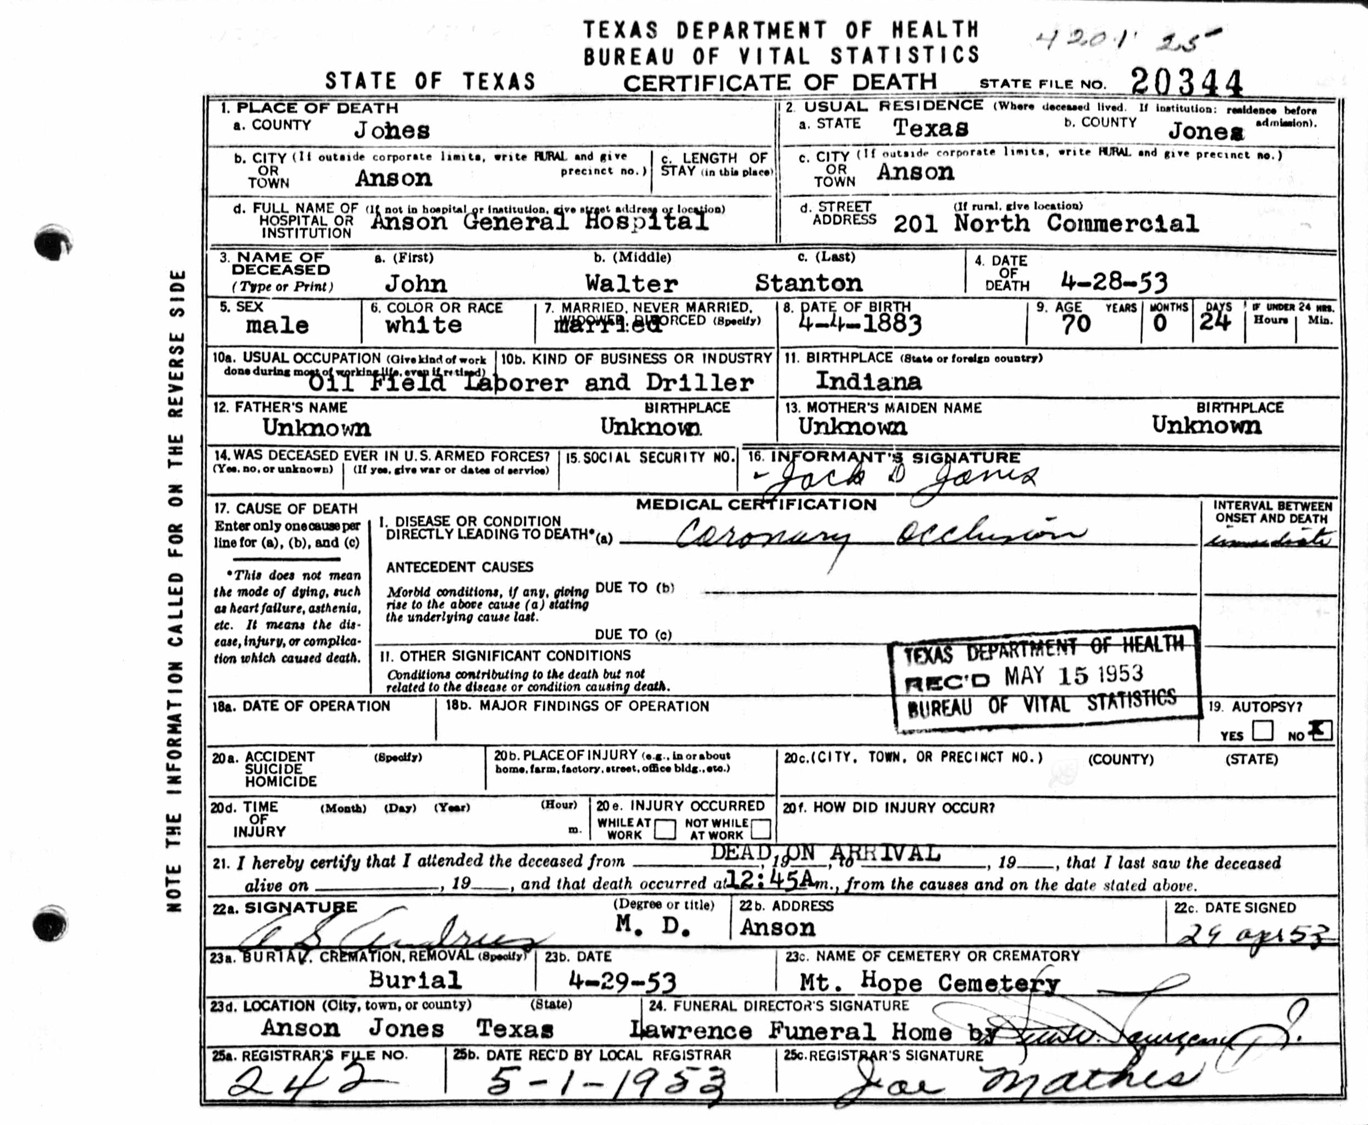 TEXAS DEPARTMENT OF HEALTH
BUREAU OF VITAL STATISTICS
4201 25
STATE OF TEXAS CERTIFICATE OF DEATH STATE FILE NO. 20344
NOTE THE INFORMATION CALLED FOR ON THE REVERSE SIDE
1. PLACE OF DEATH
a. COUNTY Jones
2. USUAL RESIDENCE (Where deceased lived. If institution: residence before admission).
a. STATE Texas b. COUNTY Jones
b. CITY (If outside corporate limits, write RURAL and give precinct no.)
OR
TOWN Anson
c. LENGTH OF
STAY (in this place)
c. CITY (If outside corporate limits, write RURAL and give precinct no.)
OR
TOWN Anson
d. FULL NAME OF (If not in hospital or institution, give street address or location)
HOSPITAL OR
INSTITUTION Anson General Hospital
d. STREET (If rural, give location)
ADDRESS 201 North Commercial
3. NAME OF DECEASED
(Type or Print)
a. (First) b. (Middle) c. (Last)
John Walter Stanton
4. DATE
OF
DEATH 4-28-53
5. SEX
male
6. COLOR OR RACE
white
7. MARRIED, NEVER MARRIED,
WIDOWED, DIVORCED (Specify)
married
8. DATE OF BIRTH
4-4-1883
9. AGE YEARS MONTHS DAYS IF UNDER 24 HRS.
Hours Min.
70 0 24
10a. USUAL OCCUPATION (Give kind of work
done during most of working life, even if retired)
10b. KIND OF BUSINESS OR INDUSTRY
Oil Field Laborer and Driller
11. BIRTHPLACE (State or foreign country)
Indiana
12. FATHER'S NAME BIRTHPLACE
Unknown Unknown
13. MOTHER'S MAIDEN NAME BIRTHPLACE
Unknown Unknown
14. WAS DECEASED EVER IN U.S. ARMED FORCES?
(Yes, no, or unknown) (If yes, give war or dates of service)
15. SOCIAL SECURITY NO.
16. INFORMANT'S SIGNATURE
Jack D Jones
17. CAUSE OF DEATH
Enter only one cause per
line for (a), (b), and (c)
*This does not mean
the mode of dying, such
as heart failure, asthenia,
etc. It means the dis-
ease, injury, or complica-
tion which caused death.
MEDICAL CERTIFICATION
I. DISEASE OR CONDITION
DIRECTLY LEADING TO DEATH*(a) Coronary Occlusion
INTERVAL BETWEEN
ONSET AND DEATH
immediate
ANTECEDENT CAUSES
Morbid conditions, if any, giving
rise to the above cause (a) stating
the underlying cause last.
DUE TO (b)
DUE TO (c)
II. OTHER SIGNIFICANT CONDITIONS
Conditions contributing to the death but not
related to the disease or condition causing death.
TEXAS DEPARTMENT OF HEALTH
REC'D MAY 15 1953
BUREAU OF VITAL STATISTICS
18a. DATE OF OPERATION
18b. MAJOR FINDINGS OF OPERATION
19. AUTOPSY?
YES NO X
20a. ACCIDENT (Specify)
SUICIDE
HOMICIDE
20b. PLACE OF INJURY (e.g., in or about
home, farm, factory, street, office bldg., etc.)
20c. (CITY, TOWN, OR PRECINCT NO.) (COUNTY) (STATE)
20d. TIME (Month) (Day) (Year) (Hour)
OF
INJURY m.
20e. INJURY OCCURRED
WHILE AT WORK NOT WHILE AT WORK
20f. HOW DID INJURY OCCUR?
DEAD ON ARRIVAL
21. I hereby certify that I attended the deceased from , 19 , to , 19 , that I last saw the deceased
alive on , 19 , and that death occurred at 12:45A m., from the causes and on the date stated above.
22a. SIGNATURE (Degree or title)
M. D.
22b. ADDRESS
Anson
22c. DATE SIGNED
29 apr 53
23a. BURIAL, CREMATION, REMOVAL (Specify)
Burial
23b. DATE
4-29-53
23c. NAME OF CEMETERY OR CREMATORY
Mt. Hope Cemetery
23d. LOCATION (City, town, or county) (State)
Anson Jones Texas
24. FUNERAL DIRECTOR'S SIGNATURE
Lawrence Funeral Home by
25a. REGISTRAR'S FILE NO.
242
25b. DATE REC'D BY LOCAL REGISTRAR
5-1-1953
25c. REGISTRAR'S SIGNATURE
Joe Mathis